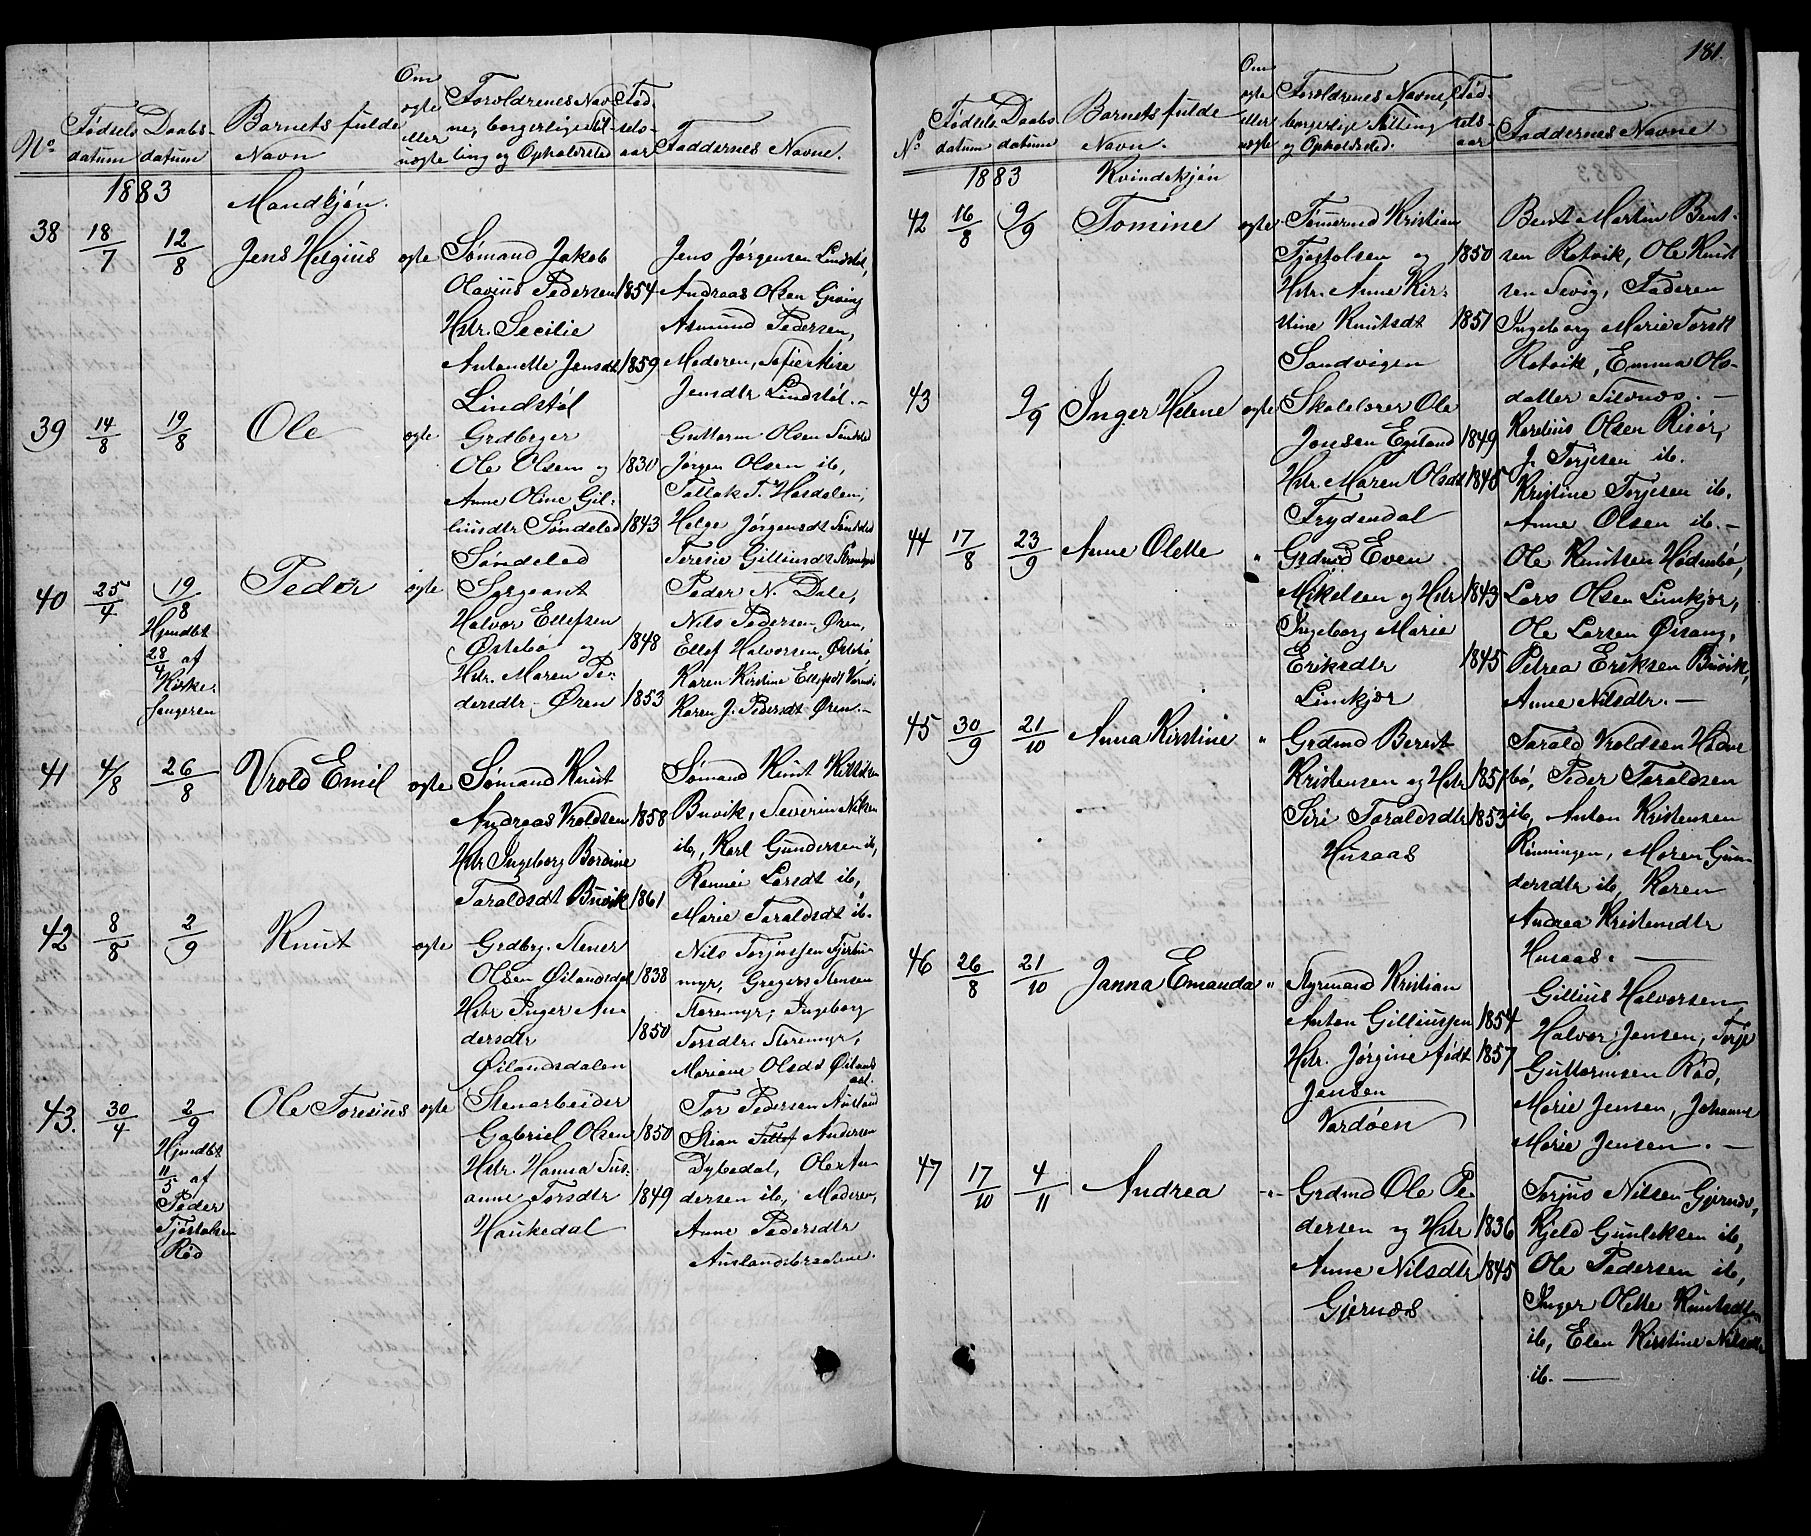 No.
Fødsels
datum
Daabs
datum
Barnets fulde
Navn
Om
ægte
eller
uægte
Forældrenes Nav
ne, borgerlige Stil
ling og Opholdsted
Fød
sels-
aar
Faddernes Navne.
1883 Mandkjøn.
38 18/7 12/8 Jens Helgius ægte
Sømand Jakob
Olavius Pedersen 1854
Hstr. Secilie
Antonette Jensdt 1859
Lindstøl
Jens Jørgensen Lindstøl,
Andreas Olsen Gjeving
Asmund Pedersen,
Moderen, Sofie Elise
Jensdtr Lindstøl. -
39 14/8 19/8 Ole ægte
Grdbrger
Ole Olsen og 1830
Anne Oline Gil-
liundtr Søndeled 1843
Søndeled
Guttorm Olsen Søndeled
Jørgen Olsen ib,
Tallak T. Hasdalen,
Helge Jørgensdt Søndeled
Teresie Gilliundt
40 25/4 19/8 Peder ægte
Hjmdbt
28/4 af
Kirke-
sangeren
Sergeant
Halvor Ellefsen
Østebø og 1848
Hstr. Maren Pe-
dersdtr Øren 1853
Peder N. Dale,
Nils Pedersen Øren,
Ellef Halvorsen Østebø
Karen Kirstine Ellefsdt
Karen J. Pedersdt Øren. -
41 4/8 26/8 Vrold Emil ægte
Sømand Knut
Andreas Vroldsen 1858
Hstr Ingeborg Berdine
Taraldsdt Buvik 1861
Sømand Knut
Buvik, Severin Nilsen
ib, Karl Gundersen ib,
Larsdt ib,
Marie Taraldsdt ib.
42 8/8 2/9 Knut ægte
Grdbrg. Stener
Olsen Øilandsdal 1838
Hstr Inger An-
dersdtr 1850
Øilandsdalen
Nils Torjussen
myr, Gregers Stensen
Storemyr, Ingeborg
Torsdtr Storemyr,
Mariane Olsdt Øilands
dal.
43. 30/4 2/9 Ole Toresius ægte
Hjmdbt
11/5 af
Peder
Tjøstolsen
Rød
Stenarbeider
Gabriel Olsen 1850
Hstr. Hanna Sus-
anne Torsdtr 1849
Haukedal
Tor Pedersen Ausland
Stian Andersen
Dybedal, Ole An-
dersen ib, Moderen,
Anne Pedersdtr
181.
No.
Fødsels
datum
Daabs
datum
Barnets fulde
Navn.
Om
ægte
eller
uægte
Forældrenes Navne,
borgerlige Stilling
og Opholdsted.
Fød-
sels-
aar
Faddernes Navne
1883 Kvindekjøn
42 16/8 9/9 Tomine ægte
Tømmermd Kristian
Tjøstolsen og 1850
Hstr. Anne Kir-
stine Knutsdt 1851
Sandvigen
Bent Martin Bent-
sen Rotvik, Ole Knut
sen Sevig, Faderen
Ingeborg Marie Torsdt
Rotvik, Emma Ols-
datter
43 9/9 Inger Helene ægte
Skolelærer Ole
Jensen Egeland 1849
Hstr. Maren Olsdt 1845
Frydendal
Karelius Olsen Risør,
J. Terjesen ib.
Kristine Terjesen ib.
Anne Olsen ib. -
44 17/8 23/9 Anne Olette "
Grdmd Even
Mikelsen og Hstr 1843
Ingeborg Marie
Eriksdtr 1845
Limkjær
Ole Knutsen Hødnebø,
Lars Olsen Limkjær,
Ole Larsen Øisang,
Petrea Eriksen Buvik,
Anne Nilsdtr. -
45 30/9 21/10 Anna Kirstine "
Grdmd Berent
Kristensen og Hstr 1851
Siri Taraldsdtr 1853
Husaas
Tarald Vroldsen Hødne
bø, Peder Taraldsen
ib, Anton Kristensen
Rønningen, Maren Gun
dersdtr ib, Karen
Andrea Kristensdtr
Husaas. -
46 26/8 21/10 Janna Emanda "
Styrmand Kristian
Anton Gilliussen 1854
Hstr. Jørgine født 1857
Jensen
Vardøen
Gillius Halvorsen
Halvor Jensen, Terje
Guttormsen Rød,
Marie Jensen, Johanne
Marie Jensen. -
47 17/10 4/11 Andrea -"-
Grdmd Ole Pe-
dersen og Hstr 1836
Anne Nilsdtr 1845
Gjernæs
Torjus Nilsen Gjernæs,
Kjeld Gunleksen ib,
Ole Pedersen ib,
Inger Olette Knutsdtr
ib, Elen Kirstine Nilsdtr
ib. -